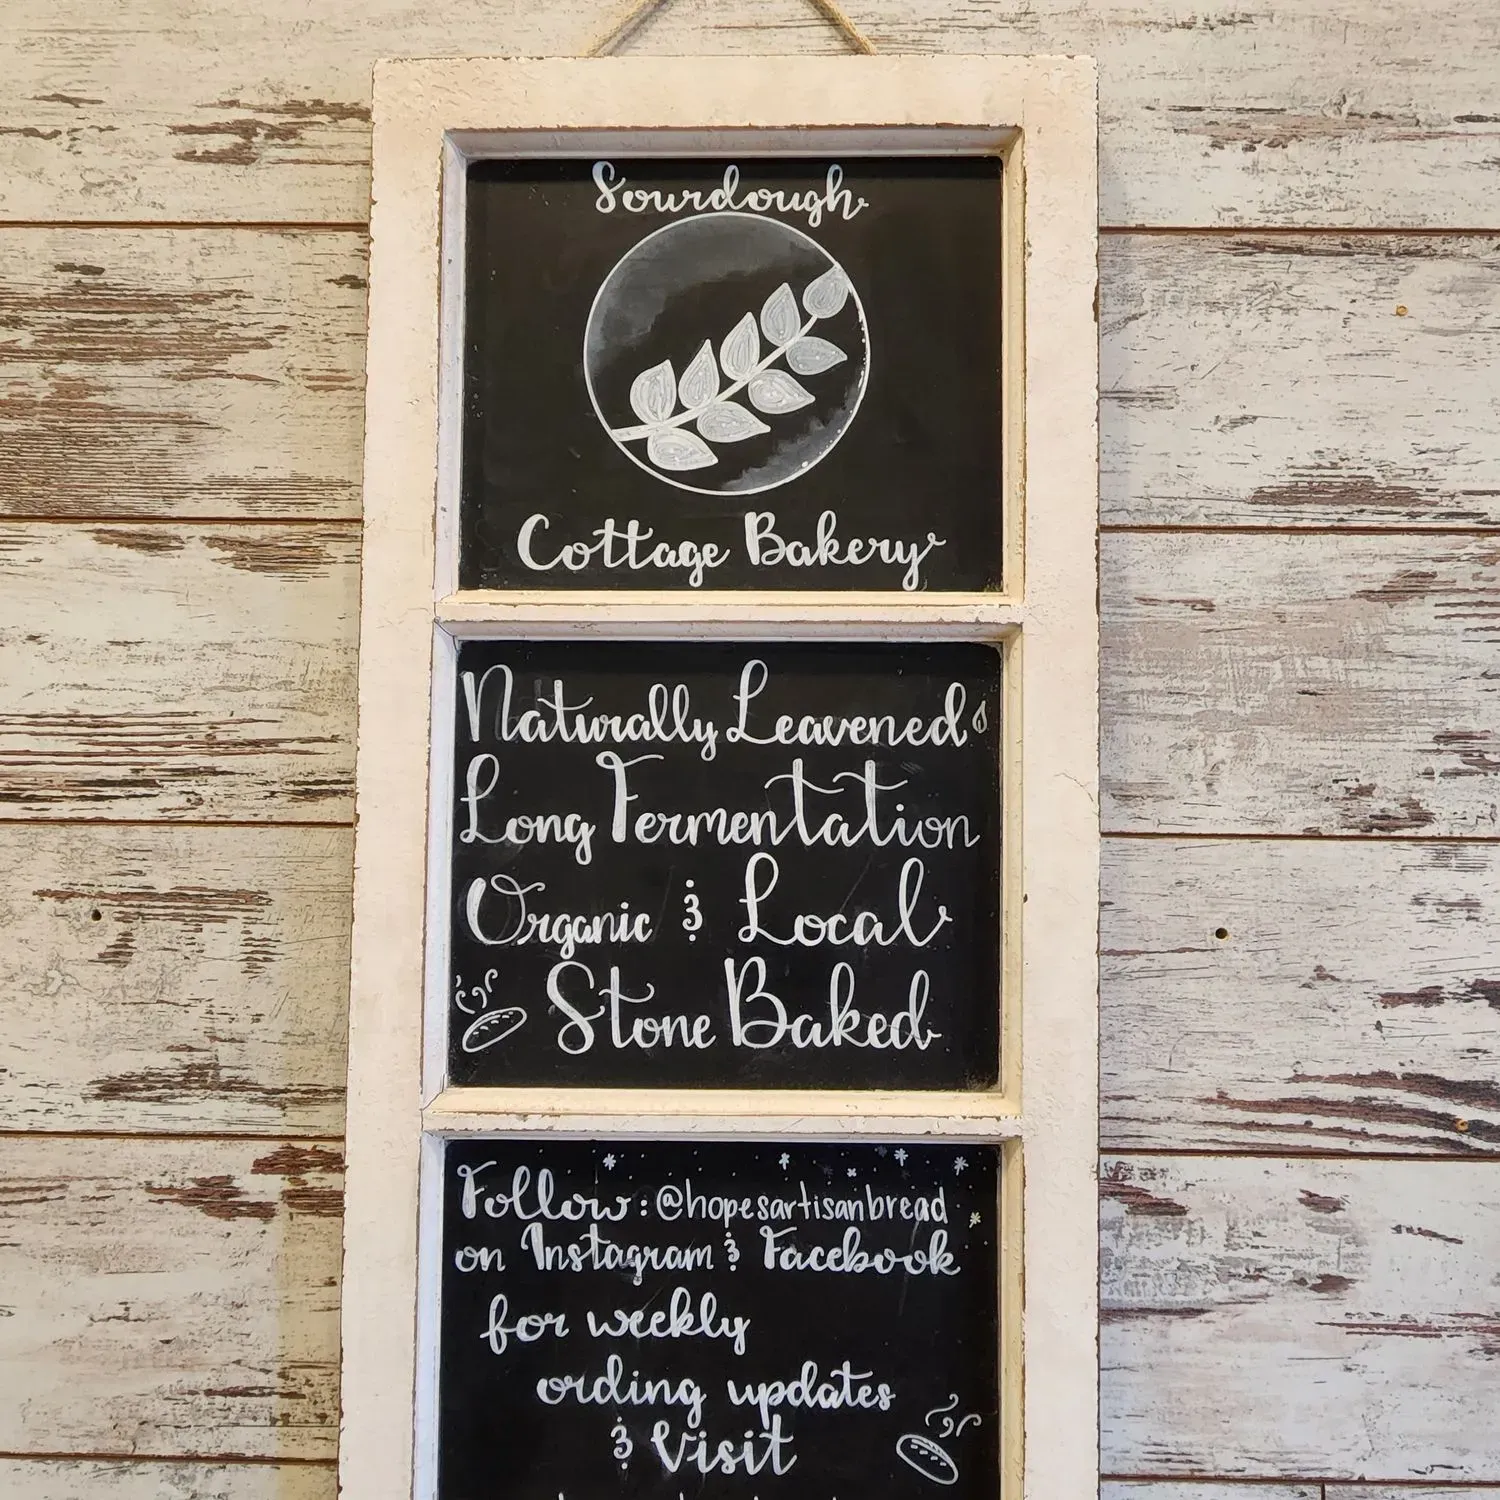 Sourdough
Cottage Bakery
Naturally Leavened
Long Fermentation
Organic & Local
Stone Baked
Follow: @hopesartisanbread
on Instagram & Facebook
for weekly
ording updates
& Visit